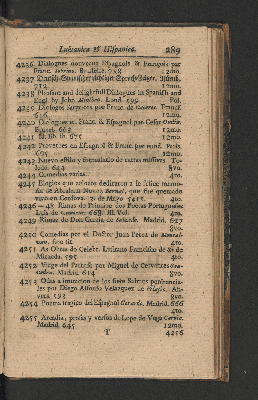 Lusitanica & Hispanica. 289
4236 Dialogues nouveaux Espagnols & François par
Franc. Sobrino. Bruxelles. 708 12mo.
712 12mo.
4238 Pleasant and delightfull Dialogues in Spanish and
Engl by John Minsheu. Lond. 599 Fol.
4239 Dialogos Sarjentos par Franc. de Caceres. Francf.
616 12mo.
4240 Dialogues en Franc. & Espagnol par Cesar Oudin.
Bruxel. 663 12mo.
4241 Id. lib. ib. 675 12mo.
4242 Proverbes en Espagnol & Franc. par eund. Paris.
605 12mo.
4243 Nuevo estilo y formulario de cartas missivas. To-
ledo. 644 8vo.
4244 Comedias varias. 4to.
4245 Elogios que zelosos dedicaron a la felice memo-
ria de Abraham Nunez Bernal, que fue quemado
vivo en Cordova. 3 de Mayo 5415. 4to.
4246—48 Rimas de
Luis de Camoens. 663. III Vol. 4to.
4249 Rimas de Don Garcia de Salcedo. Madrid. 627
8vo.
4250 Comedias por el Doctor Juan Perez de Montal-
van. sine tit. 4to.
4251 As Obras do Celebr. Lusitano Francisco de Sa de
Miranda. 595 4to.
4252 Viage del Parnaso por Miguel de Cervantes Saa-
vedra. Madrid. 614 8vo.
4253 Odas a imitacion de los siete Salmos penitencia-
les por Diego Alfonso Velazquez de Velasco. An-
vers. 593 8vo.
4254 Poema tragico del Espagnol Gerardo. Madrid. 666
4to.
4255 Arcadia, prosas y versos de Lope de Vega Carpio.
Madrid. 645 12mo.
T 4256